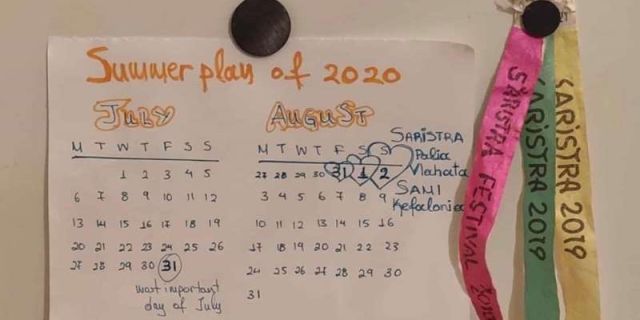 Summer plan of 2020
JULY
M T W T F S S
1 2 3 4 5
6 7 8 9 10 11 12
13 14 15 16 17 18 19
20 21 22 23 24 25 26
27 28 29 30 31
most important
day of July
AUGUST
M T W T F S S
27 28 29 30 31 1 2
3 4 5 6 7 8 9
10 11 12 13 14 15 16
17 18 19 20 21 22 23
24 25 26 27 28 29 30
31
SARISTRA
Palia
Vlahata
SAMI
Kefalonia
SARISTRA FESTIVAL
SARISTRA 2019
SARISTRA 2019